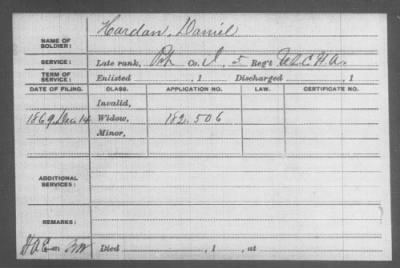 NAME OF SOLDIER: Hardan, Daniel
SERVICE: Late rank, Pvt Co. I, 5 Reg't U.S.C.H.A.
TERM OF SERVICE: Enlisted , 1 Discharged , 1
DATE OF FILING. CLASS. APPLICATION NO. LAW. CERTIFICATE NO.
Invalid,
1869 Dec 14 Widow, 182.506
Minor,
ADDITIONAL SERVICES:
REMARKS:
Died , 1 , at